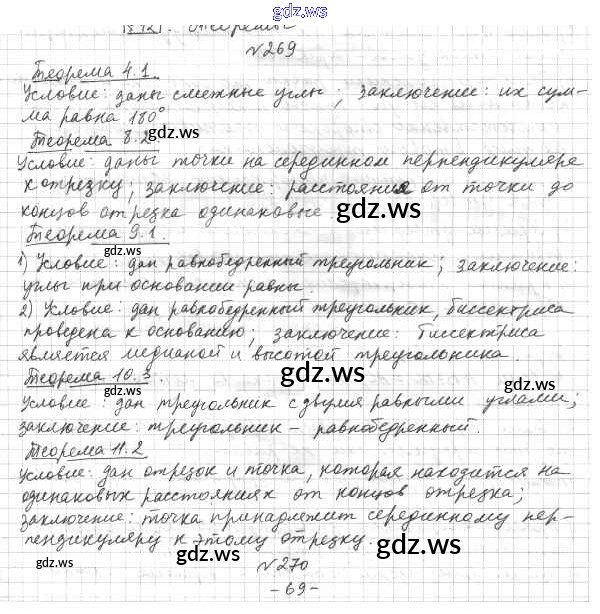 gdz.ws
§ 12. Теоремы
№269
Теорема 4.1.
Условие: даны смежные углы; заключение: их сум-
ма равна 180°
Теорема 8.2. gdz.ws
Условие: даны точки на серединном перпендикуляре
к отрезку; заключение: расстояния от точки до
концов отрезка одинаковые. gdz.ws
Теорема 9.1. gdz.ws
1) Условие: дан равнобедренный треугольник; заключение:
углы при основании равны.
2) Условие: дан равнобедренный треугольник, биссектриса
проведена к основанию; заключение: биссектриса
является медианой и высотой треугольника.
Теорема 10.3. gdz.ws gdz.ws
Условие: дан треугольник с двумя равными углами;
заключение: треугольник – равнобедренный.
Теорема 11.2 gdz.ws
Условие: дан отрезок и точка, которая находится на
одинаковых расстояниях от концов отрезка;
заключение: точка принадлежит серединному пер-
пендикуляру к этому отрезку. gdz.ws
№270
-69-
gdz.ws gdz.ws